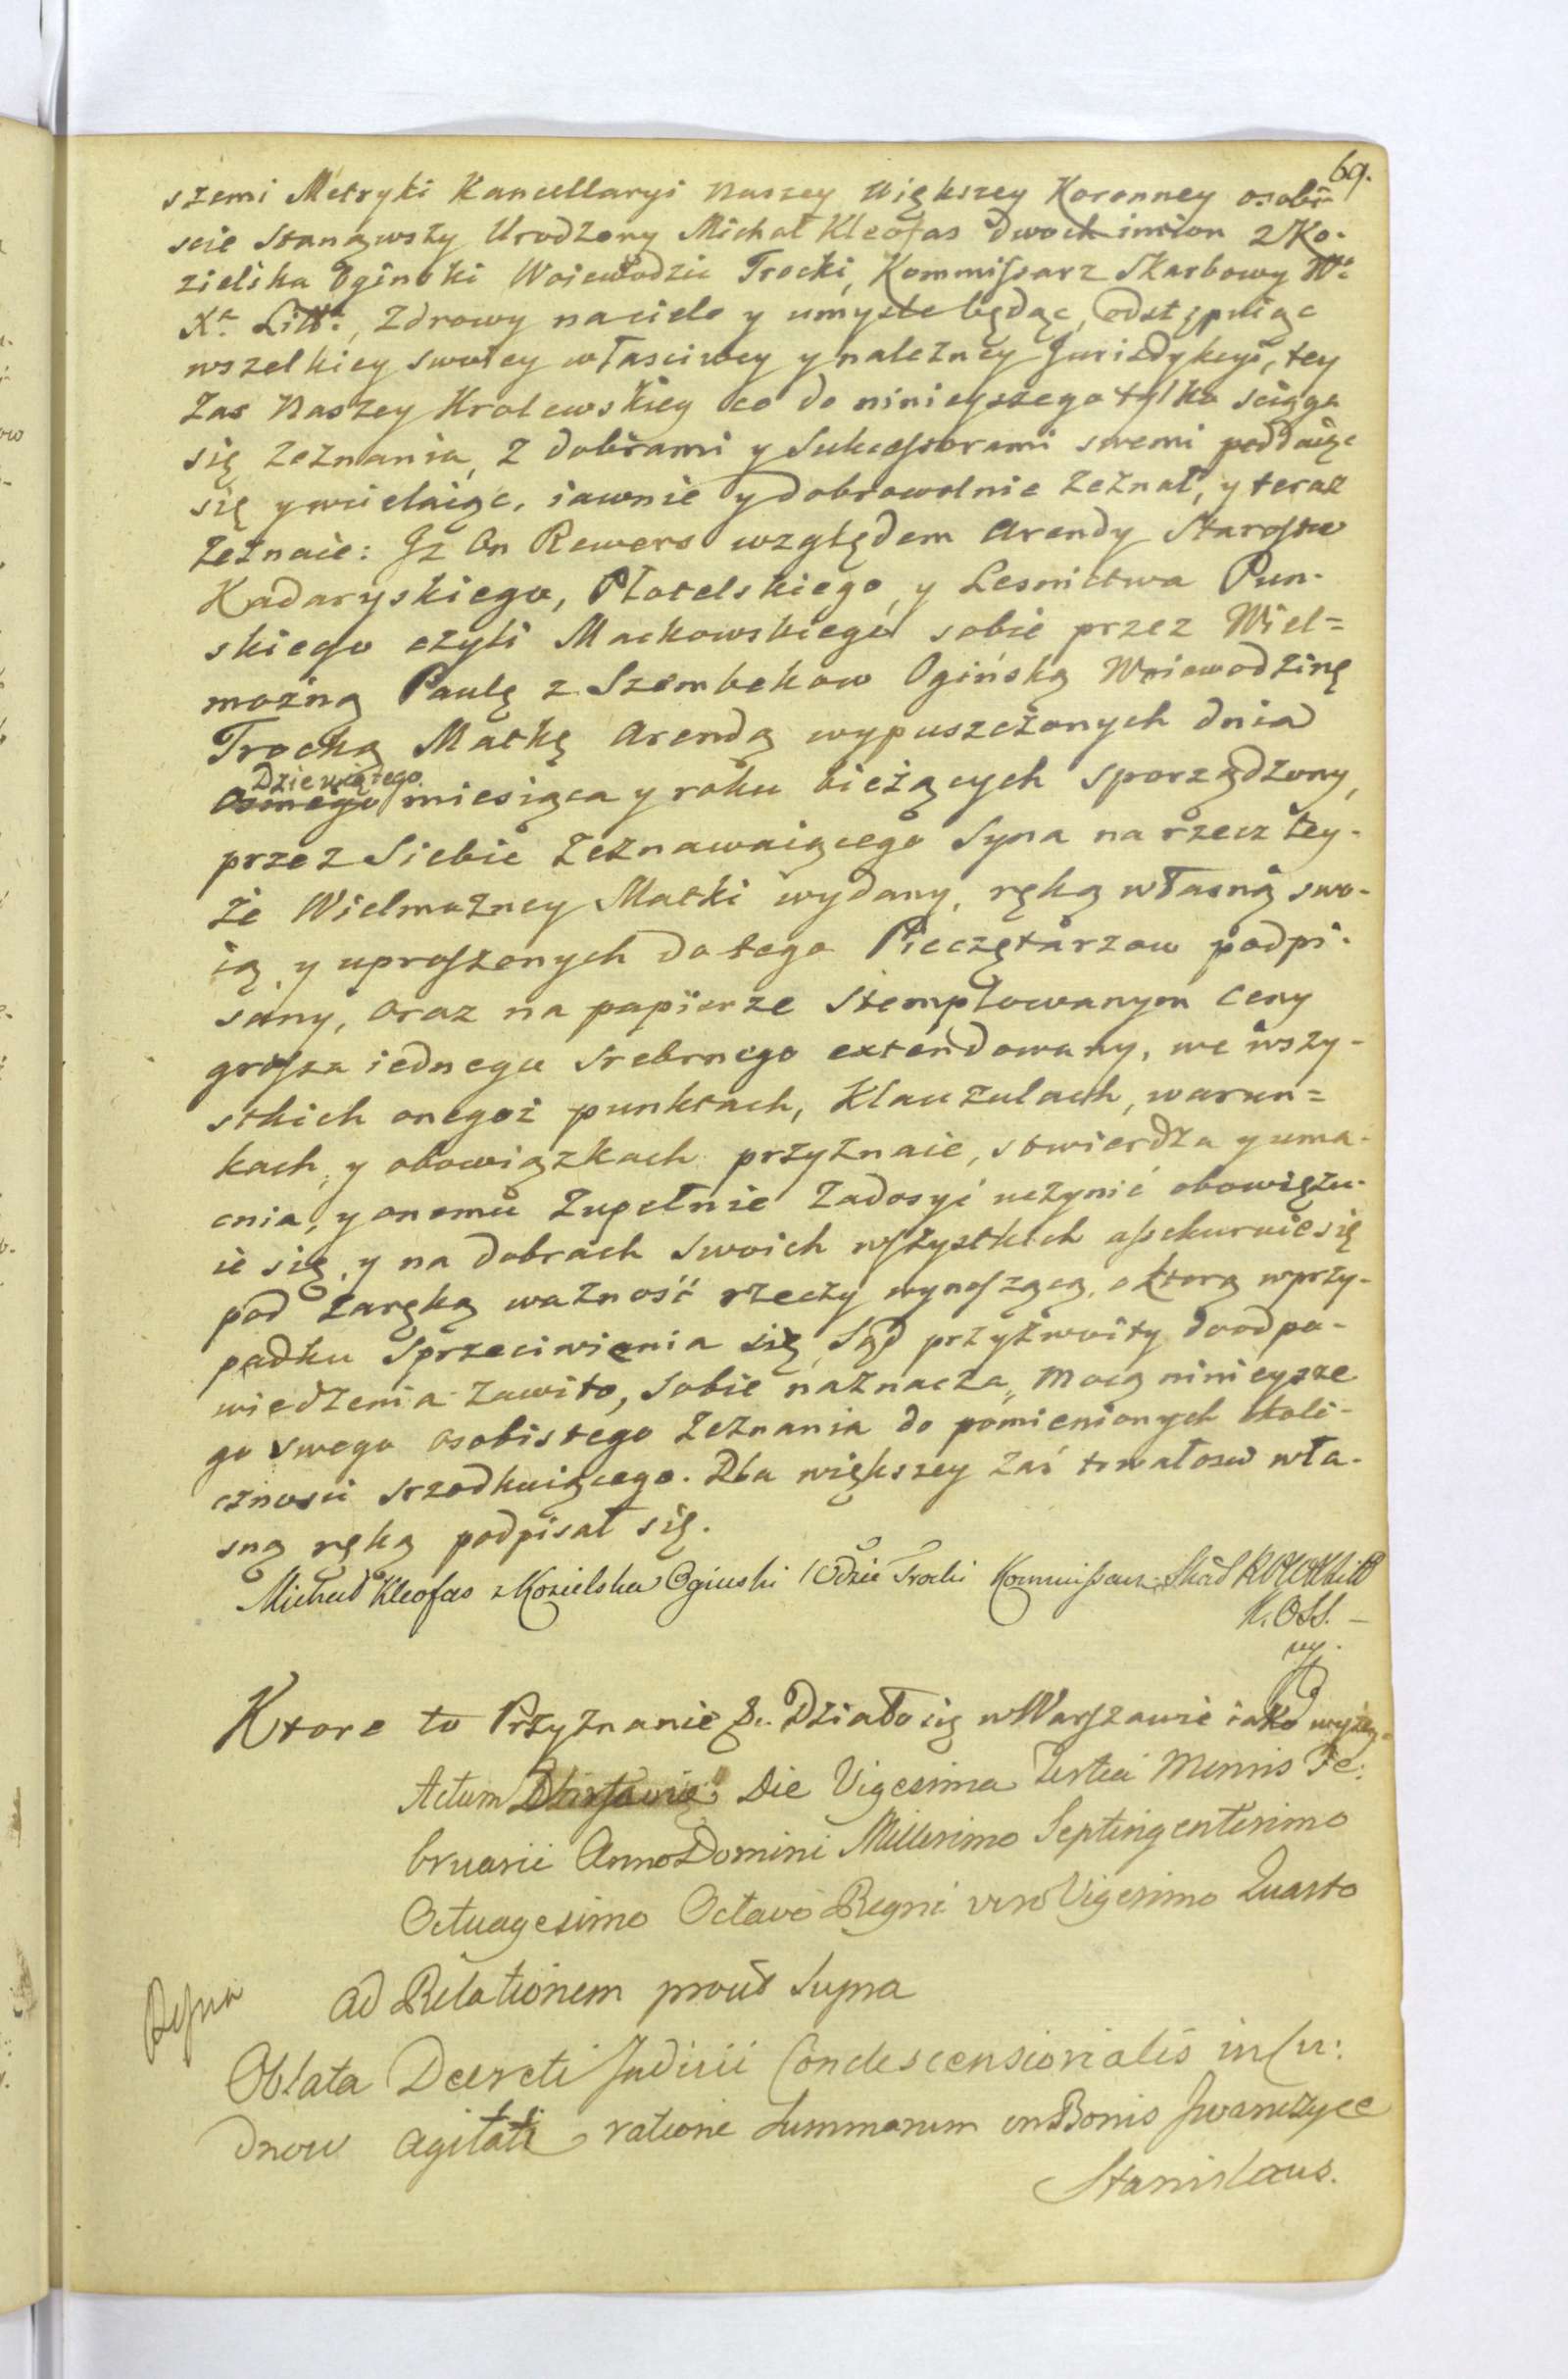 69.
szemi Metryki Kancellaryi Naszey Większey Koronney osobi-
scie Stanąwszy Urodzony Michał Kleofas dwoch imion z Ko-
zielska Oginski Woiewodzic Trocki, Kommissarz Skarbowy W°
X° Litt°, Zdrowy na ciele y umysle będąc, odstępuiąc
wszelkiey swoiey własciwey y należney Jurizdykcyi, tey
Zas Naszey Krolewskiey co do ninieyszego tylko sciąga
się Zeznania, z dobrami y Sukcessorami swemi poddaiąc
się y wcielaiąc, iawnie y dobrowolnie Zeznał, y teraz
Zeznaie: Iż On Rewers względem Arendy Starostw
Kadaryskiego, Płotelskiego, y Lesnictwa Pun-
skiego czyli Mackowskiego sobie przez Wiel=
możną Paulę z Szembekow Ogińską Woiewodzinę
Trocką Matkę Arendą wypuszczonych dnia
Dziewiątego
Osmego miesiąca y roku bieżących sporządzony,
przez Siebie Zeznawaiącego Syna na rzecz tey-
że Wielmożney Matki wydany, ręką własną swo-
ią, y uproszonych do tego Pieczętarzow podpi-
sany, oraz na papierze Stemplowanym ceny
grosza iednego srebrnego extendowany, we wszy-
stkich onegoż punktach, Klauzulach, warun=
kach, y obowiązkach przyznaie, stwierdza y uma-
cnia, y onemu Zupełnie Zadosyć uczynić obowiązu-
ie się, y na dobrach Swoich wszystkich assekuruie się
pod Zaręką ważność rzeczy wynoszącą, o ktorą w przy-
padku Sprzeciwienia się, Sąd przyzwoity do odpo-
wiedzenia Zawito, Sobie naznacza, mocą ninieysze
go swego osobistego Zeznania do pomienionych okoli-
cznosci srzodkuiącego. Dla większey zaś trwałosci wła-
sną ręką podpisał się.
Michał Kleofas z Kozielska Oginski Wdzic Trocki Kommissarz Skar
K. OSS.
Ktore to Przyznanie &. Działo się w Warszawie iako wyżey.
Actum Varsaviæ Die Vigesima Tertia Mensis Fe:
bruarii Anno Domini Millesimo Septingentesimo
Octuagesimo Octavo Regni vero Vigesimo Quarto
Ad Relationem prout Supra
Oblata Decreti Judicii Condescensionalis in Cu:
dnow agitati ratione Summarum in Bonis Iwanczyce
Stanislaus.